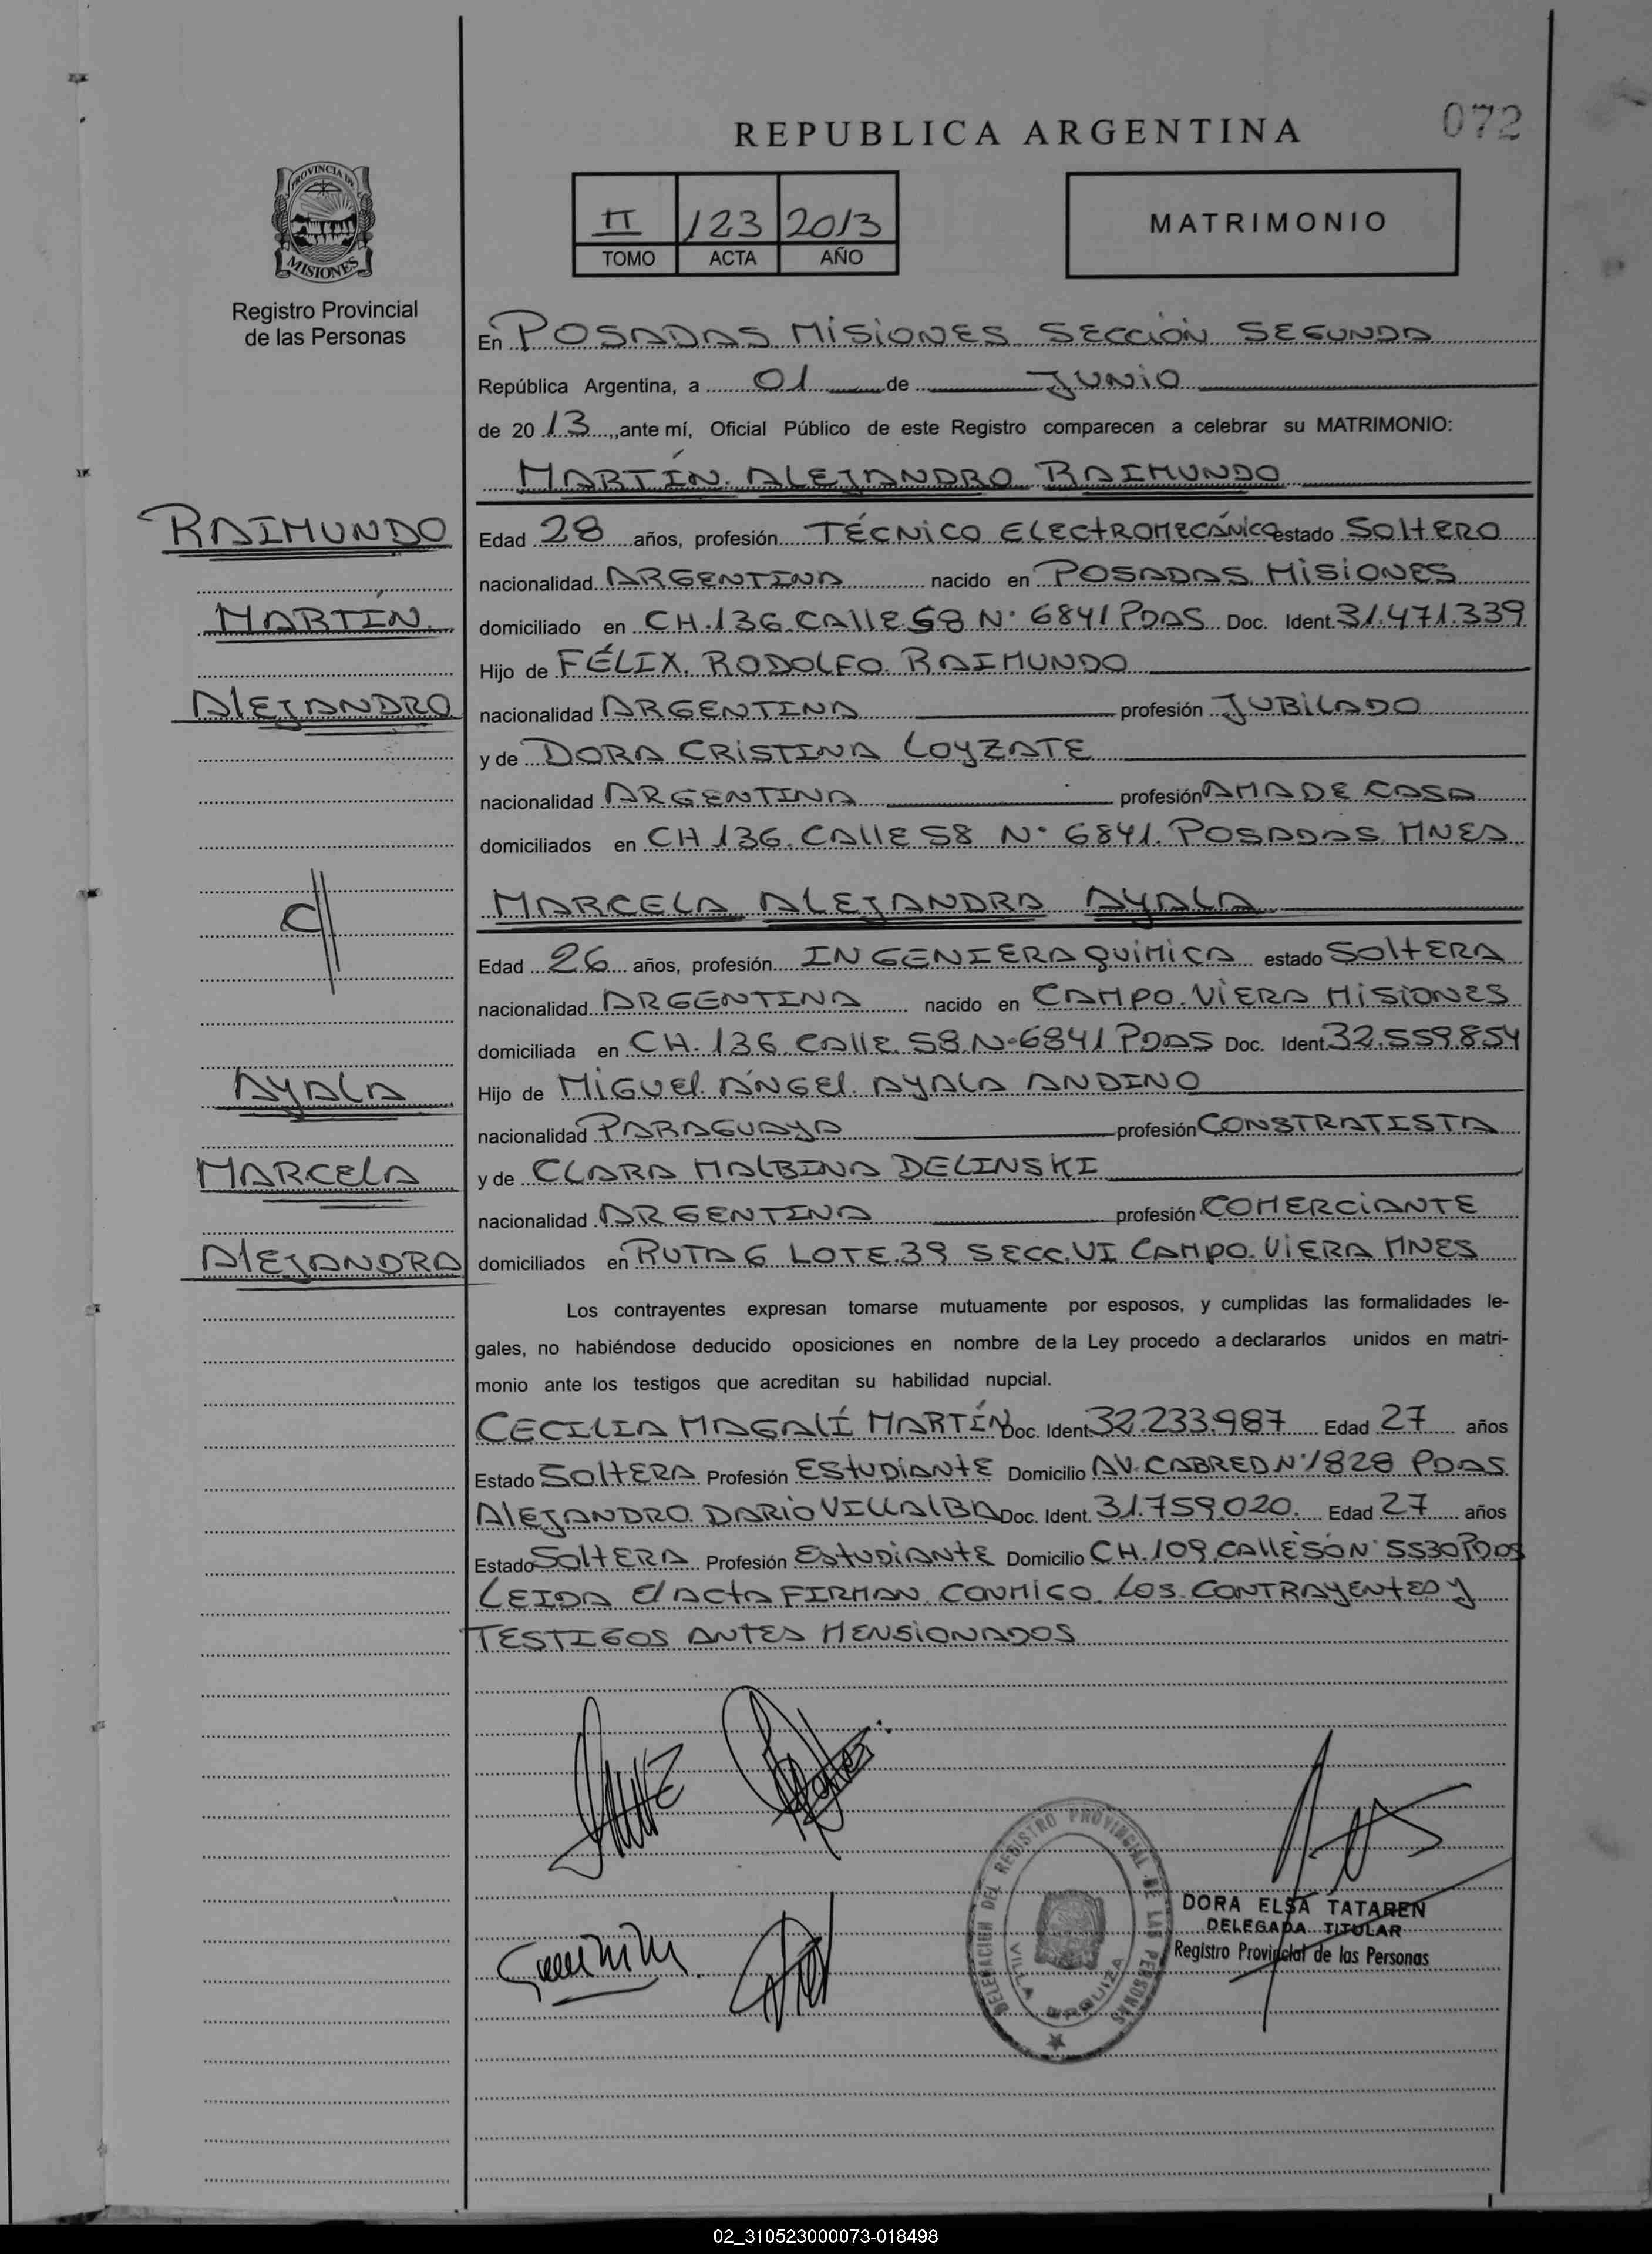 072
REPUBLICA ARGENTINA
PROVINCIA DE
MISIONES
II 123 2013
TOMO ACTA AÑO
MATRIMONIO
Registro Provincial
de las Personas
En POSADAS MISIONES SECCIÓN SEGUNDA
República Argentina, a 01 de JUNIO
de 20 13, ante mí, Oficial Público de este Registro comparecen a celebrar su MATRIMONIO:
MARTÍN ALEJANDRO RAIMUNDO
RAIMUNDO
Edad 28 años, profesión TÉCNICO ELECTROMECÁNICO estado SOLTERO
nacionalidad ARGENTINA nacido en POSADAS MISIONES
MARTÍN
domiciliado en CH.136 CALLE 58 N° 6841 PDAS Doc. Ident. 31.471.339
Hijo de FÉLIX RODOLFO RAIMUNDO
ALEJANDRO
nacionalidad ARGENTINA profesión JUBILADO
y de DORA CRISTINA LOYZATE
nacionalidad ARGENTINA profesión AMA DE CASA
domiciliados en CH 136 CALLE 58 N° 6841 POSADAS MNES
C//
MARCELA ALEJANDRA AYALA
Edad 26 años, profesión INGENIERA QUIMICA estado SOLTERA
nacionalidad ARGENTINA nacido en CAMPO VIERA MISIONES
domiciliada en CH. 136 CALLE 58 N° 6841 PDAS Doc. Ident. 32.559.854
AYALA
Hijo de MIGUEL ÁNGEL AYALA ANDINO
nacionalidad PARAGUAYA profesión CONSTRATISTA
MARCELA
y de CLARA MALBINA DELINSKI
nacionalidad ARGENTINA profesión COMERCIANTE
ALEJANDRA
domiciliados en RUTA 6 LOTE 39 SECC. VI CAMPO VIERA MNES
Los contrayentes expresan tomarse mutuamente por esposos, y cumplidas las formalidades le-
gales, no habiéndose deducido oposiciones en nombre de la Ley procedo a declararlos unidos en matri-
monio ante los testigos que acreditan su habilidad nupcial.
CECILIA MAGALÍ MARTÍN Doc. Ident. 32.233.987 Edad 27 años
Estado SOLTERA Profesión ESTUDIANTE Domicilio AV. CABRED N° 1828 PDAS
ALEJANDRO DARIO VILLALBA Doc. Ident. 31.759.020 Edad 27 años
Estado SOLTERA Profesión ESTUDIANTE Domicilio CH.109 CALLE 50 N° 5530 PDAS
LEIDA El ACTA FIRMAN CONMIGO LOS CONTRAYENTES Y
TESTIGOS ANTES MENSIONADOS
DELEGACION DEL REGISTRO PROVINCIAL DE LAS PERSONAS
VILLA URQUIZA
DORA ELSA TATAREN
DELEGADA TITULAR
Registro Provincial de las Personas
02_310523000073-018498